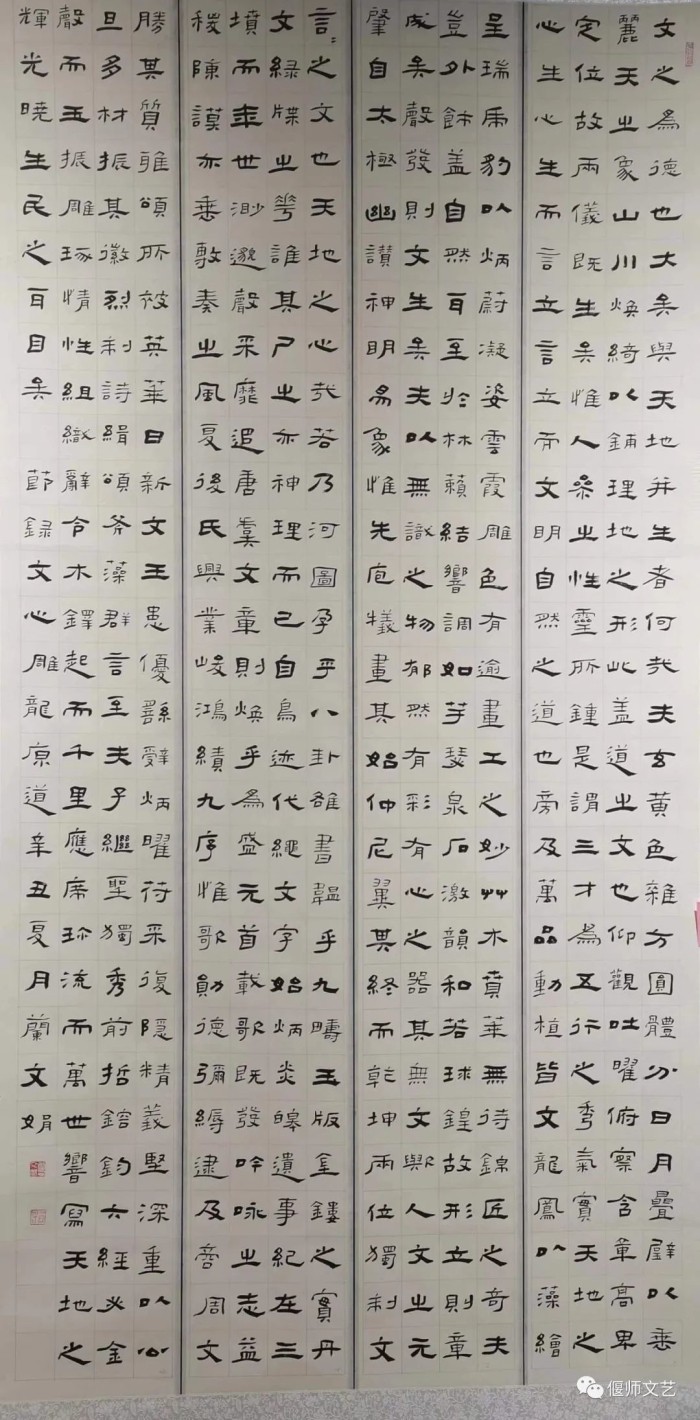 文之為德也大矣與天地并生者何哉夫玄黄色雜方圓體分日月疊璧以垂
麗天之象山川煥綺以鋪理地之形此盖道之文也仰觀吐曜俯察含章高卑
定位故兩儀既生矣惟人叅之性靈所鍾是謂三才為五行之秀氣實天地之
心生心生而言立言立而文明自然之道也旁及萬品動植皆文龍鳳以藻繪
呈瑞虎豹以炳蔚凝姿雲霞雕色有逾畫工之妙艸木賁華無待錦匠之奇夫
豈外飾盖自然耳至於林籟結響調如竽瑟泉石激韻和若球鍠故形立則章
成矣聲發則文生矣夫以無識之物郁然有彩有心之器其無文歟人文之元
肇自太極幽讚神明易象惟先庖犧畫其始仲尼翼其終而乾坤兩位獨制文
言〻之文也天地之心哉若乃河圖孕乎八卦雒書韞乎九疇玉版金鏤之實丹
文緑牒之華誰其尸之亦神理而已自鳥迹代繩文字始炳炎皞遺事紀在三
墳而年世渺邈聲采靡追唐虞文章則煥乎為盛元首載歌既發吟咏之志益
稷陳謨亦垂敷奏之風夏後氏興業峻鴻績九序惟歌勛德彌縟逮及商周文
勝其質雅頌所被英華日新文王患優繇辭炳曜符采復隱精義堅深重以公
旦多材振其徽烈制詩緝頌斧藻群言至夫子繼聖獨秀前哲鎔鈞六經必金
聲而玉振雕琢情性組織辭令木鐸起而千里應席珍流而萬世響寫天地之
輝光曉生民之耳目矣 節録文心雕龍原道辛丑夏月蘭文娟
偃师文艺